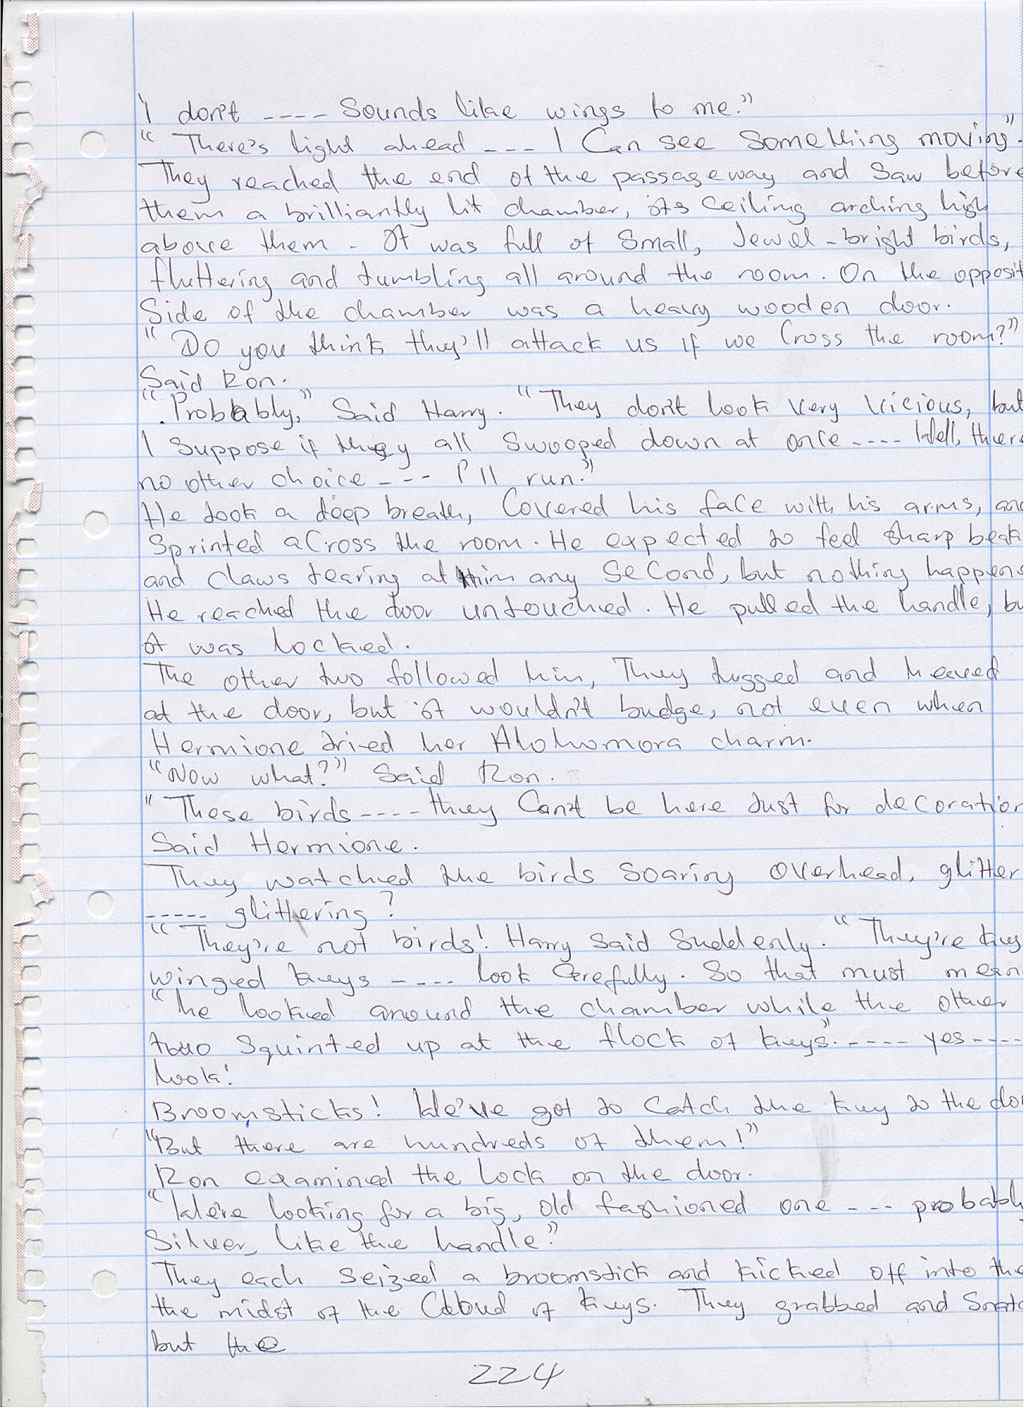 I don't ---- Sounds like wings to me."
" There's light ahead --- I Can see Something moving".
They reached the end of the passageway and Saw before
them a brilliantly lit chamber, its Ceiling arching high
above them - It was full of Small, Jewel-bright birds,
fluttering and tumbling all around the room. On the opposit
Side of the chamber was a heavy wooden door.
" Do you think they'll attack us if we Cross the room?"
Said Ron.
"Probably," Said Harry. "They don't look Very Vicious, but
I Suppose if they all Swooped down at once ---- Well, there
no other choice --- I'll run."
He took a deep breath, Covered his face with his arms, and
Sprinted across the room. He expected to feel sharp beak
and claws tearing at him any Second, but nothing happens
He reached the door untouched. He pulled the handle, bu
it was locked.
The other two followed him, They tugged and heaved
at the door, but it wouldn't budge, not even when
Hermione tried her Alohomora charm.
"Now what?" Said Ron.
"These birds ---- they Can't be here Just for decoration
Said Hermione.
They watched the birds Soaring Overhead, glitter
----- glittering?
"They're not birds! Harry Said Suddenly. "They're keys
winged keys ---- look Carefully. So that must mean
"he looked around the chamber while the other
two Squinted up at the flock of keys." ----- yes ----
look!
Broomsticks! We've got to Catch the key to the doo
"But there are hundreds of them!"
Ron examined the Lock on the door.
"We're looking for a big, old fashioned one --- probably
Silver, like the handle."
They each Seized a broomstick and kicked off into the
the midst of the Cloud of keys. They grabbed and Snatc
but the
224